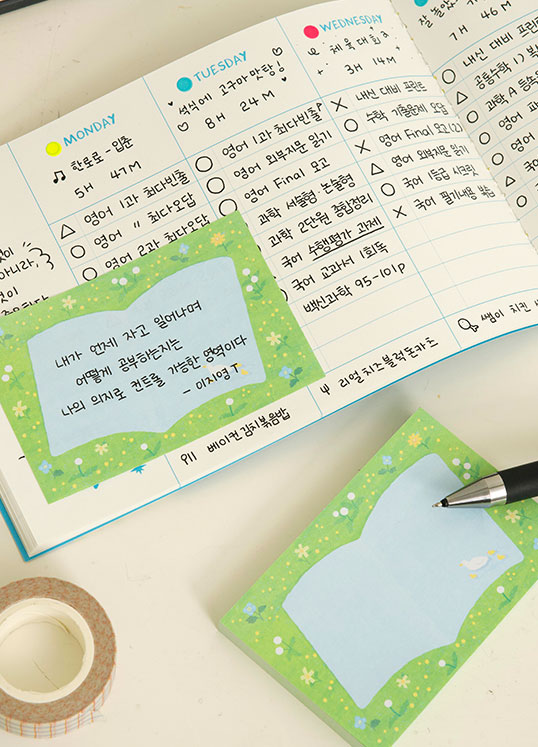 MONDAY
♫ 한로로 - 입춘
5H 47M
△ 영어 1과 최다빈출
○ 영어 〃 최다오답
○ 영어 2과 최다
TUESDAY
♡ 석식에 고구마맛탕!
♡ 8H 24M
○ 영어 1과 최다빈출
○ 영어 외부지문 읽기
○ 영어 Final 모고
과학 서술형·논술형
과학 2단원 총정리
국어 수행평가 과제
국어 교과서 1회독
백신과학 95-101p
WEDNESDAY
체육대회
3H 14M
× 내신 대비 프린트
○ 수학 기출문제 오답
× 영어 Final 모고
△ 영어 외부지문 읽기
○ 국어 1등급 시크릿
× 국어 필기내용 복습
7H 46M
○ 내신 대비 프린트
△ 공통수학
○ 과학
내가 언제 자고 일어나며
어떻게 공부하는지는
나의 의지로 컨트롤 가능한 영역이다
- 이지영T
베이컨김치볶음밥
리얼치즈블럭돈까스
쌤이 치킨